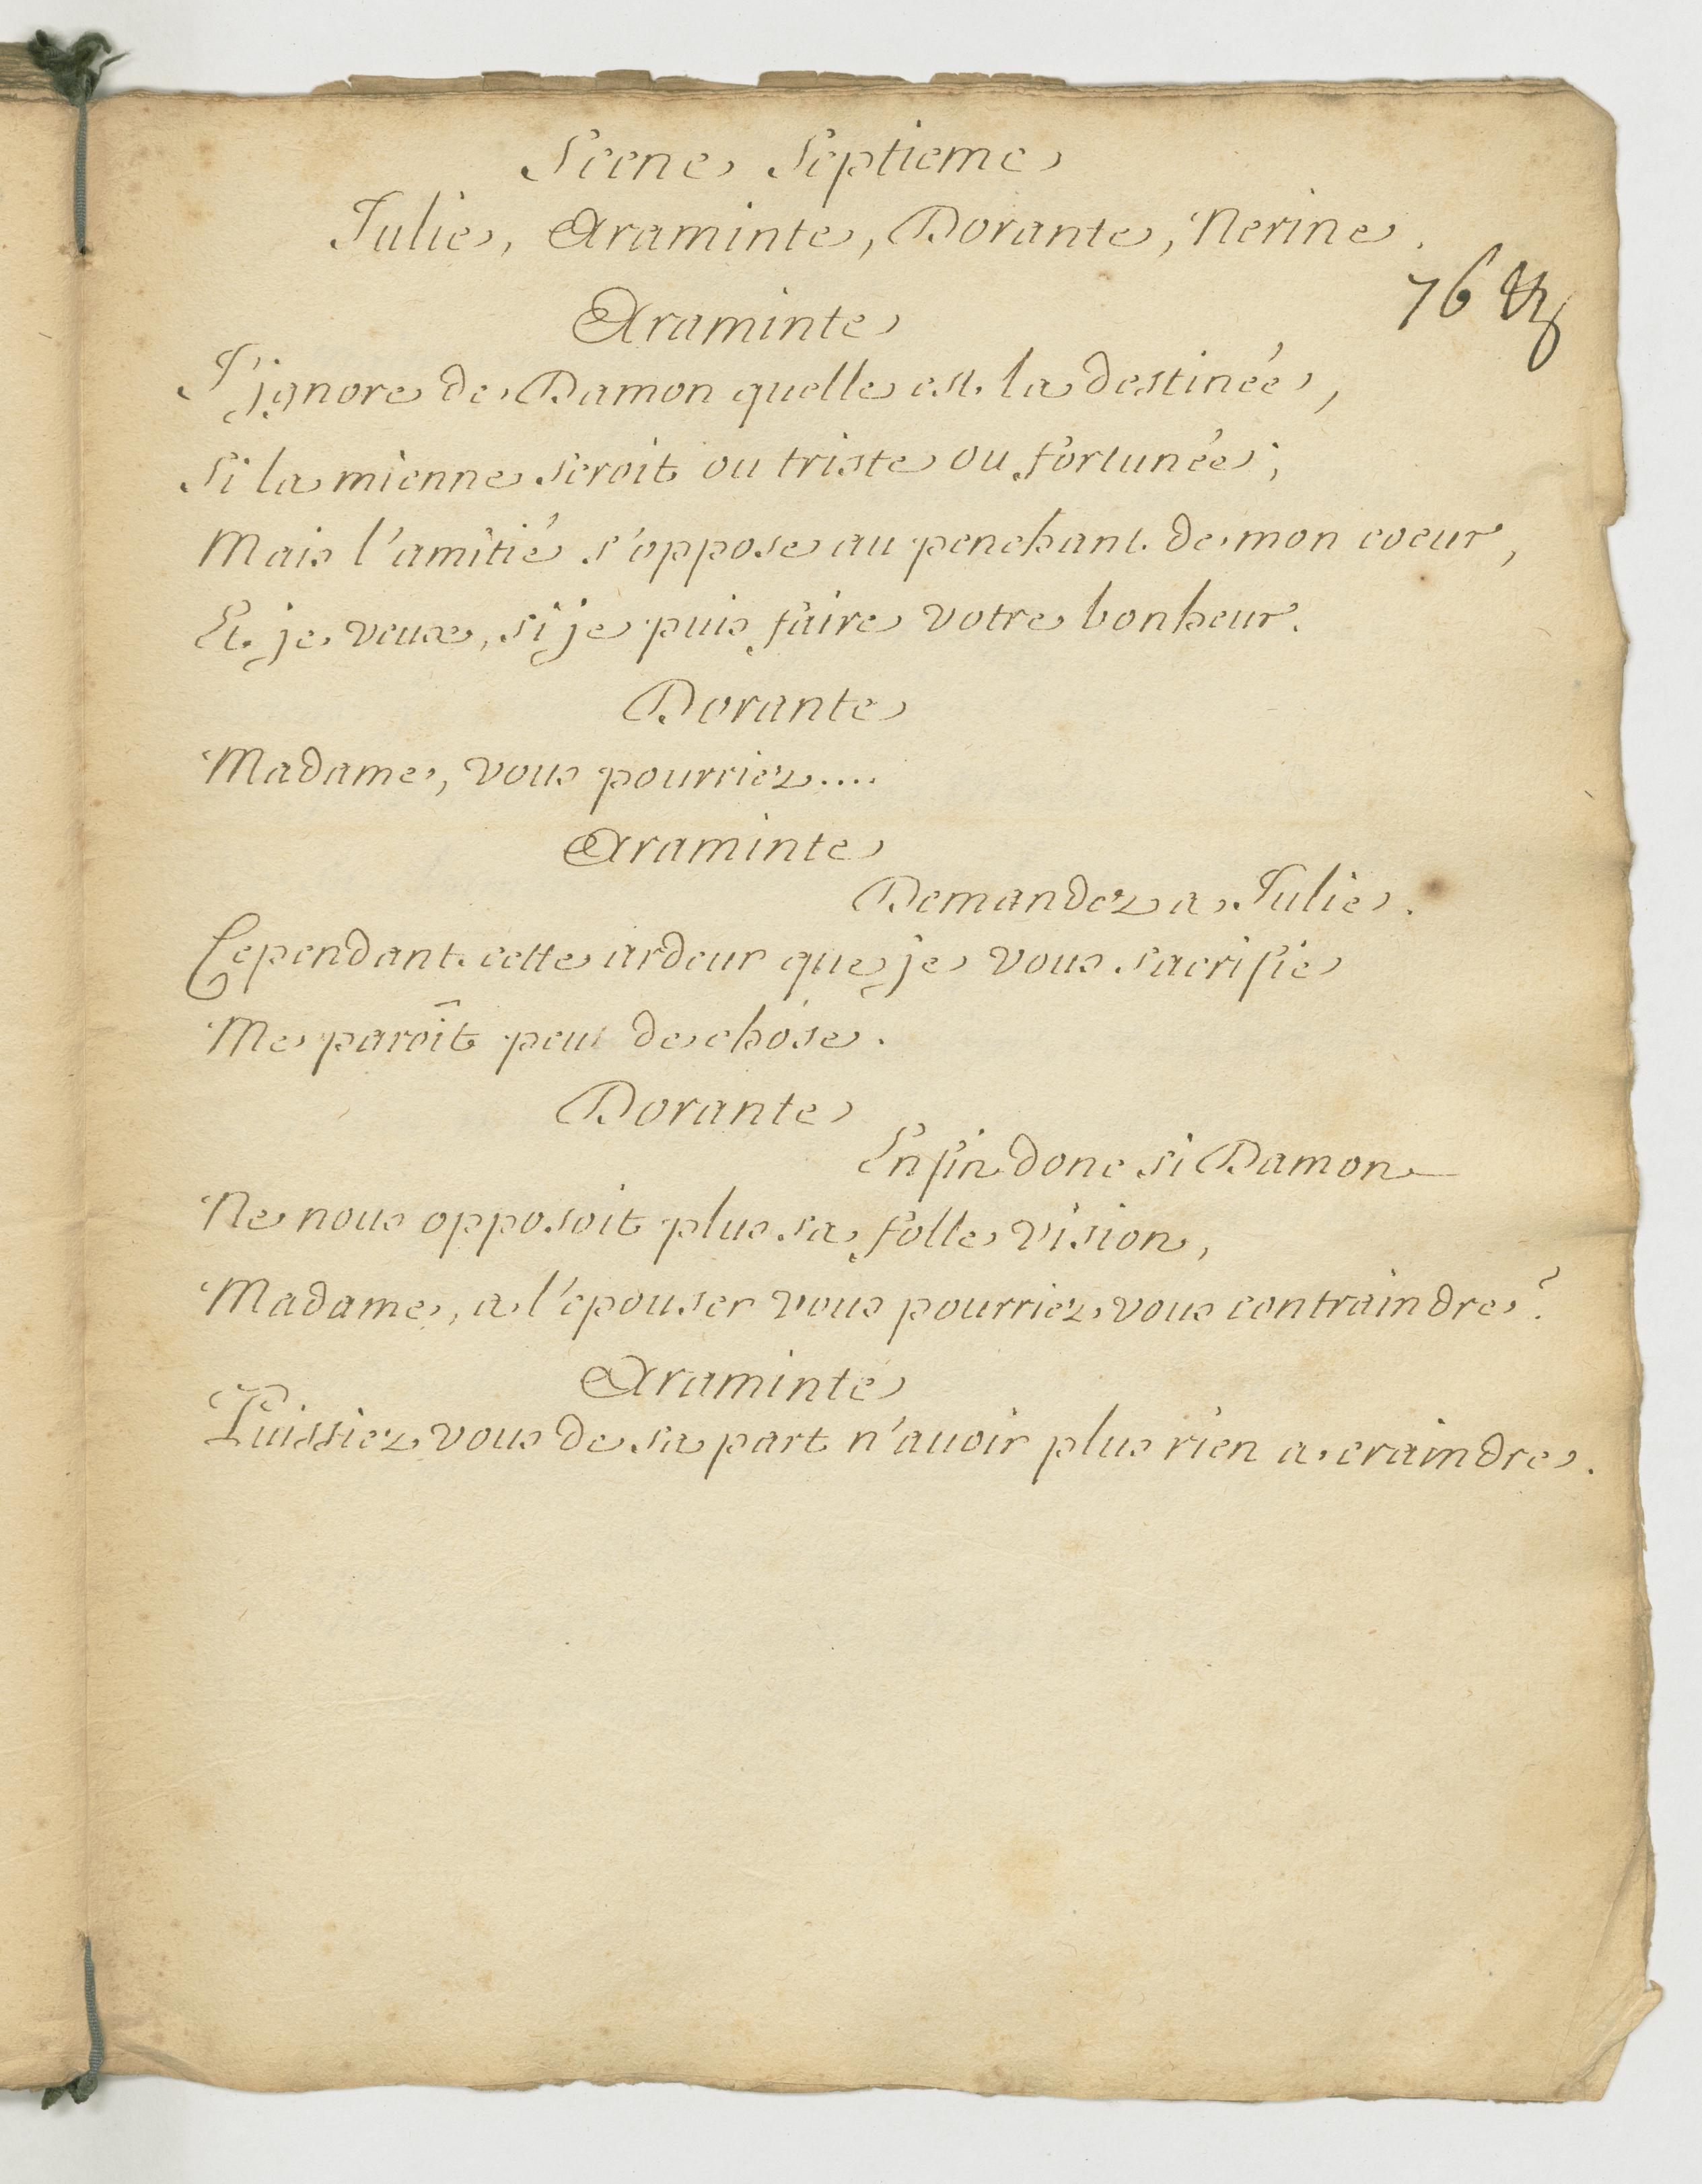 Scene Septieme
Julie, Araminte, Dorante, Nerine.
76
Araminte
J'jgnore de Damon quelle est la destinée,
Si la mienne seroit ou triste ou fortunée;
Mais l'amitié s'oppose au penchant de mon coeur,
Et je veux, si je puis faire votre bonheur.
Dorante
Madame, vous pourriez....
Araminte
Demandez a Julie.
Cependant cette ardeur que je vous sacrifie
Me paroît peu de chose.
Dorante
Enfin donc si Damon
Ne nous opposoit plus sa folle vision,
Madame, a l'epouser vous pourriez vous contraindre?
Araminte
Puissiez vous de sa part n'auoir plus rien a craindre.